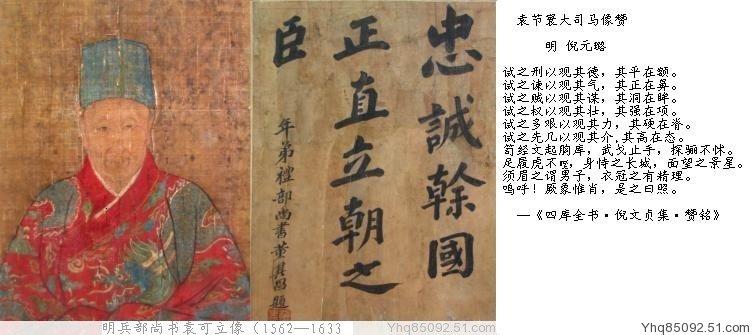 忠誠幹國
正直立朝之
臣
年弟禮部尚書董其昌題
袁节寰大司马像赞
明 倪元璐
试之刑以观其德，其平在额。
试之谏以观其气，其正在鼻。
试之贼以观其谋，其洞在眸。
试之权以观其壮，其强在项。
试之多艰以观其力，其硬在脊。
试之先几以观其介,其高在态。
经文起胸库，武戈止手，探骊不怵。
足履虎不咥，身恃之长城，面望之景星。
须眉之谓男子，衣冠之有精理。
呜呼！厥象惟肖，是之曰照。
—《四库全书·倪文贞集·赞铭》
明兵部尚书袁可立像（1562—1633
Yhq85092.51.com
Yhq85092.51.com